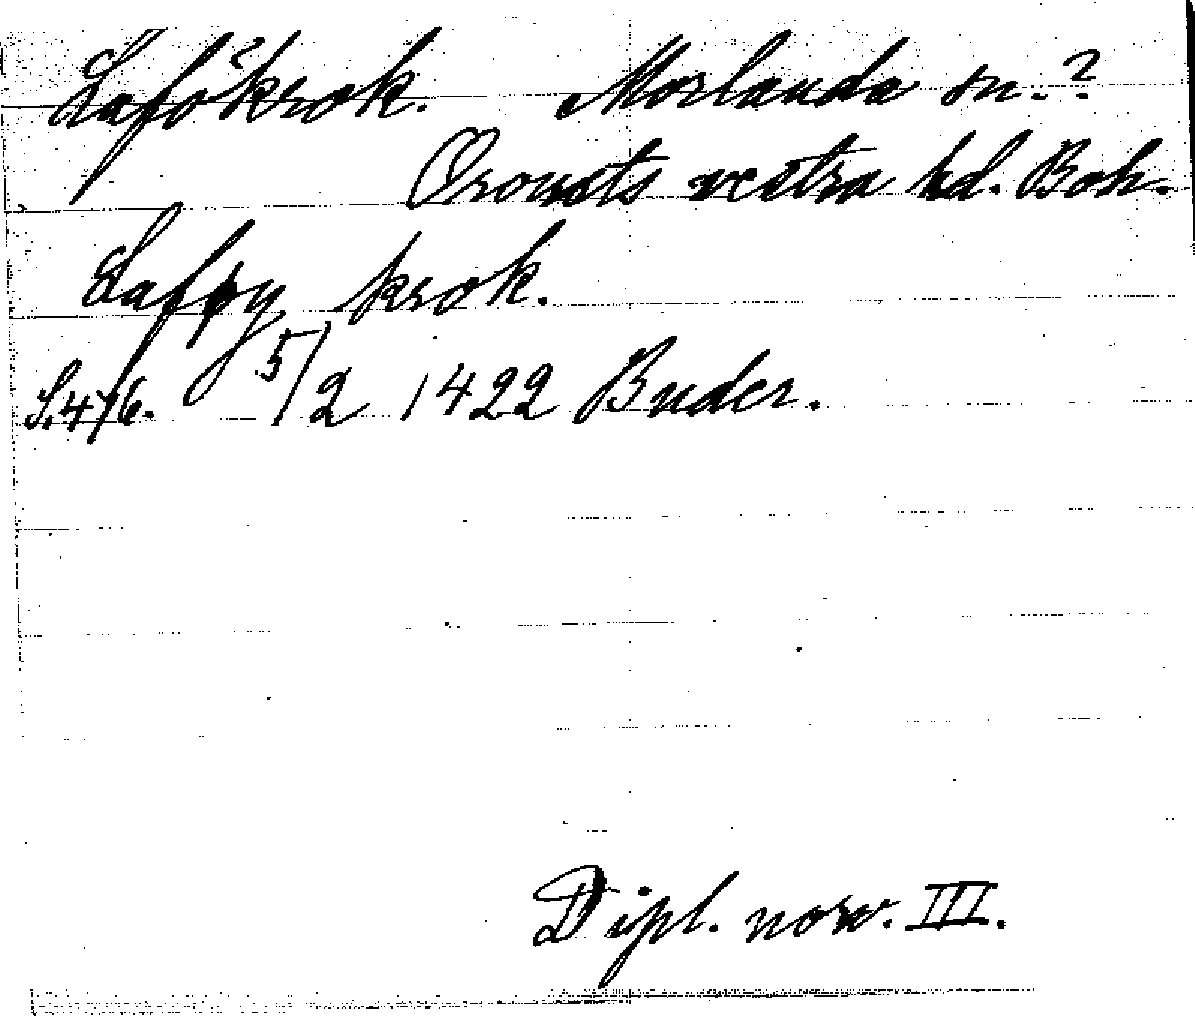 Lafökrok. Morlanda sn.?
Orousts vestra hd. Boh.
Lafpy krok.
S. 476. 5/2 1422 Buder.
Dipl. norv. III.